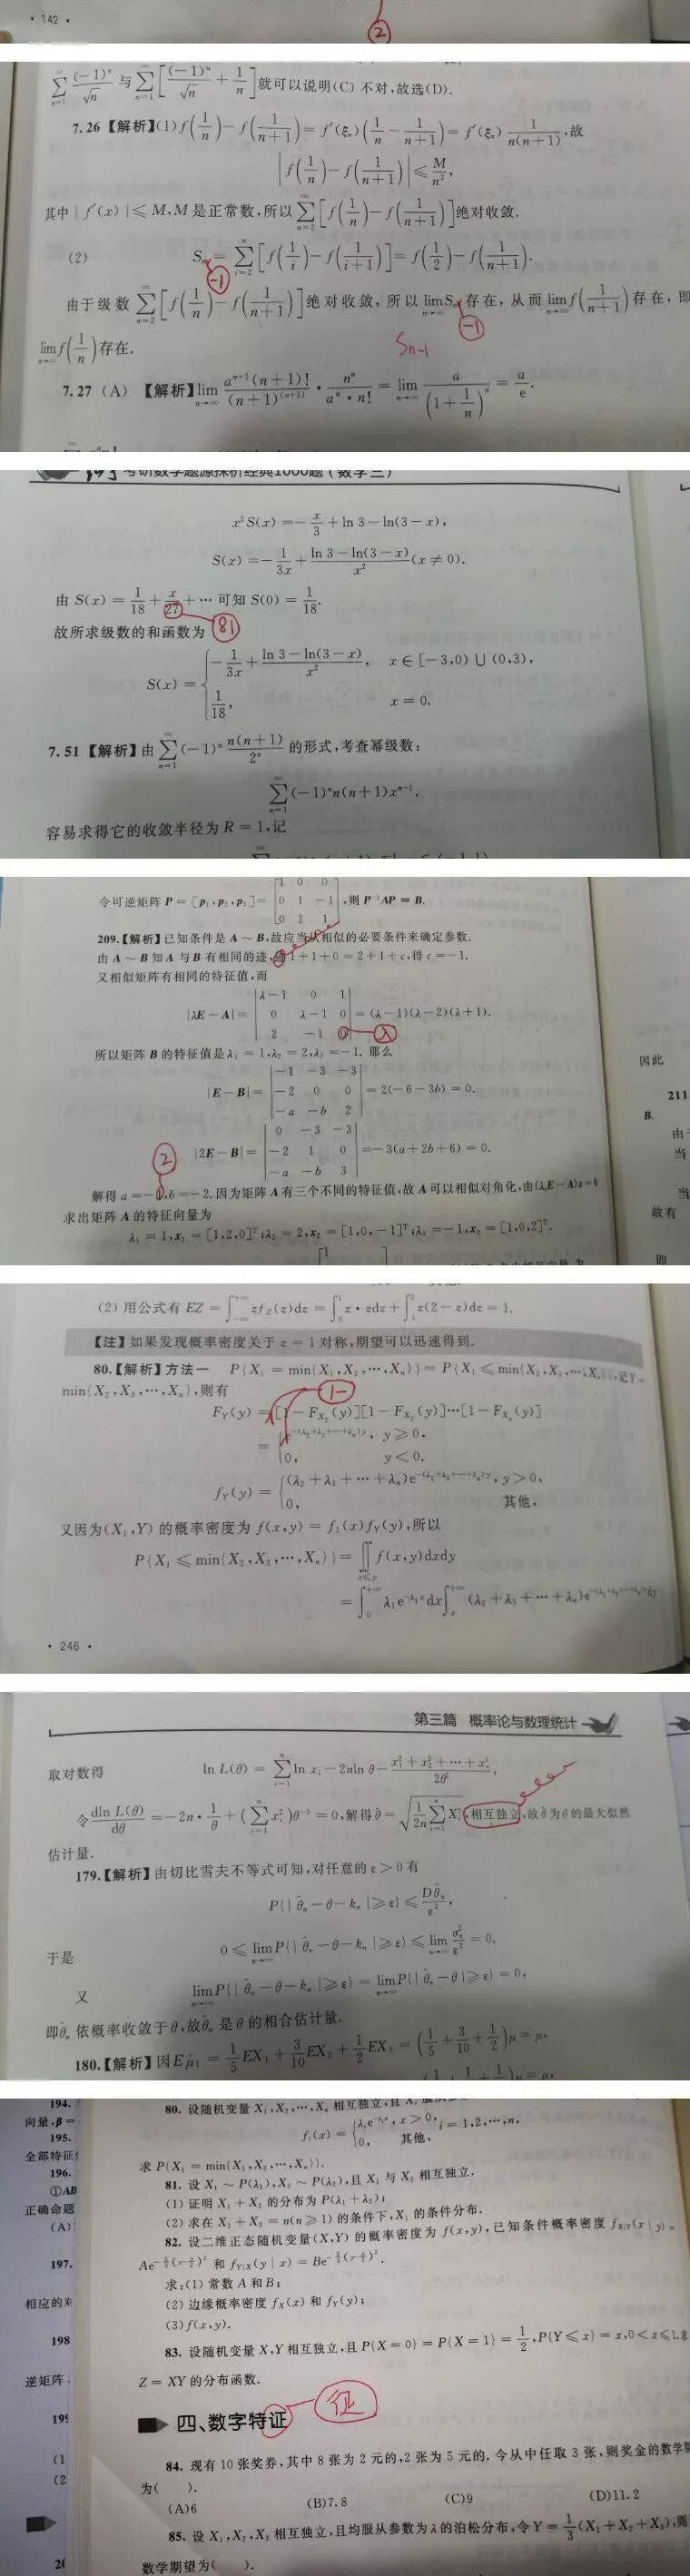 · 142 ·
②
∑_{n=1}^{∞} (-1)^n/√n 与 ∑_{n=1}^{∞} [(-1)^n/√n + 1/n] 就可以说明(C) 不对,故选(D).
7.26【解析】(1) f(1/n) - f(1/(n+1)) = f′(ξ_n)(1/n - 1/(n+1)) = f′(ξ_n) 1/(n(n+1)),故
|f(1/n) - f(1/(n+1))| ≤ M/n²,
其中 | f′(x) | ≤ M,M 是正常数,所以 ∑_{n=2}^{∞} [f(1/n) - f(1/(n+1))] 绝对收敛.
(2) S_n = ∑_{i=2}^{n} [f(1/i) - f(1/(i+1))] = f(1/2) - f(1/(n+1)).
-1
由于级数 ∑_{n=2}^{∞} [f(1/n) - f(1/(n+1))] 绝对收敛, 所以 lim_{n→∞} S_n 存在, 从而 lim_{n→∞} f(1/(n+1)) 存在, 即
-1
S_{n-1}
lim_{n→∞} f(1/n) 存在.
7.27 (A) 【解析】lim_{n→∞} a^{n+1}(n+1)!/(n+1)^{(n+1)} · n^n/(a^n · n!) = lim_{n→∞} a/(1+1/n)^n = a/e.
考研数学题源探析经典1000题(数学三)
x²S(x) = -x/3 + ln 3 - ln(3-x),
S(x) = -1/(3x) + (ln 3 - ln(3-x))/x² (x ≠ 0).
由 S(x) = 1/18 + x/27 + ··· 可知 S(0) = 1/18.
81
故所求级数的和函数为
S(x) = { -1/(3x) + (ln 3 - ln(3-x))/x², x ∈ [-3,0) ∪ (0,3),
1/18, x = 0.
7.51【解析】由 ∑_{n=1}^{∞} (-1)^n n(n+1)/2^n 的形式,考查幂级数:
∑_{n=1}^{∞} (-1)^n n(n+1)x^{n-1}.
容易求得它的收敛半径为 R = 1,记
令可逆矩阵 P = [p₁,p₂,p₃] = [1 0 0; 0 1 -1; 0 1 1],则 P⁻¹AP = B.
209.【解析】已知条件是 A ~ B,故应当从相似的必要条件来确定参数.
由 A ~ B 知 A 与 B 有相同的迹, 1+1+0 = 2+1+c,得 c = -1.
又相似矩阵有相同的特征值,而
|λE - A| = |λ-1 0 1; 0 λ-1 0; 2 -1 0| = (λ-1)(λ-2)(λ+1).
λ
所以矩阵 B 的特征值是 λ₁ = 1,λ₂ = 2,λ₃ = -1. 那么
|E - B| = |-1 -3 -3; -2 0 0; -a -b 2| = 2(-6-3b) = 0.
|2E - B| = |0 -3 -3; -2 1 0; -a -b 3| = -3(a+2b+6) = 0.
2
解得 a = - ,b = -2. 因为矩阵 A 有三个不同的特征值,故 A 可以相似对角化,由(λE-A)x=0
求出矩阵 A 的特征向量为
λ₁ = 1,x₁ = [1,2,0]^T;λ₂ = 2,x₂ = [1,0,-1]^T;λ₃ = -1,x₃ = [1,0,2]^T.
因此
211
B.
由于
当
当
故有
即
(2) 用公式有 EZ = ∫_{-∞}^{+∞} zf_Z(z)dz = ∫_0^1 z·zdz + ∫_1^2 z(2-z)dz = 1.
【注】如果发现概率密度关于 z = 1 对称,期望可以迅速得到.
80.【解析】方法一 P{X₁ = min{X₁,X₂,···,X_n}} = P{X₁ ≤ min{X₂,X₃,···,X_n}},记Y=
min{X₂,X₃,···,X_n},则有
1-
F_Y(y) = [1 - F_{X₂}(y)][1 - F_{X₃}(y)]···[1 - F_{X_n}(y)]
= { e^{-(λ₂+λ₃+···+λ_n)y}, y ≥ 0,
0, y < 0.
f_Y(y) = { (λ₂+λ₃+···+λ_n)e^{-(λ₂+λ₃+···+λ_n)y}, y > 0,
0, 其他,
又因为(X₁,Y) 的概率密度为 f(x,y) = f₁(x)f_Y(y),所以
P{X₁ ≤ min{X₂,X₃,···,X_n}} = ∬_{x≤y} f(x,y)dxdy
= ∫_0^{+∞} λ₁e^{-λ₁x}dx ∫_x^{+∞} (λ₂+λ₃+···+λ_n)e^{-(λ₂+λ₃+···+λ_n)y}dy
· 246 ·
第三篇 概率论与数理统计
取对数得 ln L(θ) = ∑_{i=1}^{n} ln x_i - 2nln θ - (x₁²+x₂²+···+x_n²)/(2θ²),
令 dln L(θ)/dθ = -2n·1/θ + (∑_{i=1}^{n} x_i²)θ⁻³ = 0,解得 θ̂ = √(1/(2n) ∑_{i=1}^{n} X_i²),相互独立,故θ̂为θ的最大似然
估计量.
179.【解析】由切比雪夫不等式可知,对任意的 ε > 0 有
P{| θ̂_n - θ - k_n | ≥ ε} ≤ Dθ̂_n/ε²,
于是 0 ≤ lim_{n→∞} P{| θ̂_n - θ - k_n | ≥ ε} ≤ lim_{n→∞} σ_n²/ε² = 0,
又 lim_{n→∞} P{| θ̂_n - θ - k_n | ≥ ε} = lim_{n→∞} P{| θ̂_n - θ | ≥ ε} = 0,
即θ̂_n 依概率收敛于 θ,故θ̂_n 是 θ 的相合估计量.
180.【解析】因 Eμ̂₁ = 1/5 EX₁ + 3/10 EX₂ + 1/2 EX₃ = (1/5 + 3/10 + 1/2)μ = μ,
194.
向量,β =
195.
全部特征
196.
①AB
正确命题
(A)
197.
相应的对
198
逆矩阵
199
(1
(2
20
80. 设随机变量 X₁,X₂,···,X_n 相互独立,且 X_i
f_i(x) = { λ_i e^{-λ_i x}, x > 0, i = 1,2,···,n,
0, 其他,
求 P{X₁ = min{X₁,X₂,···,X_n}}.
81. 设 X₁ ~ P(λ₁),X₂ ~ P(λ₂),且 X₁ 与 X₂ 相互独立.
(1) 证明 X₁ + X₂ 的分布为 P(λ₁+λ₂);
(2) 求在 X₁ + X₂ = n(n ≥ 1) 的条件下,X₁ 的条件分布.
82. 设二维正态随机变量(X,Y) 的概率密度为 f(x,y),已知条件概率密度 f_{X|Y}(x | y) =
和 f_{Y|X}(y | x) =
求:(1) 常数 A 和 B;
(2) 边缘概率密度 f_X(x) 和 f_Y(y);
(3) f(x,y).
83. 设随机变量 X,Y 相互独立,且 P{X = 0} = P{X = 1} = 1/2,P{Y ≤ x} = x,0 < x ≤ 1.求
Z = XY 的分布函数.
征
四、数字特证
84. 现有 10 张奖券,其中 8 张为 2 元的,2 张为 5 元的. 今从中任取 3 张, 则奖金的数学期
为( ).
(A)6 (B)7.8 (C)9 (D)11.2
85. 设 X₁,X₂,X₃ 相互独立,且均服从参数为 λ 的泊松分布,令 Y = 1/3(X₁+X₂+X₃),则
数学期望为( ).